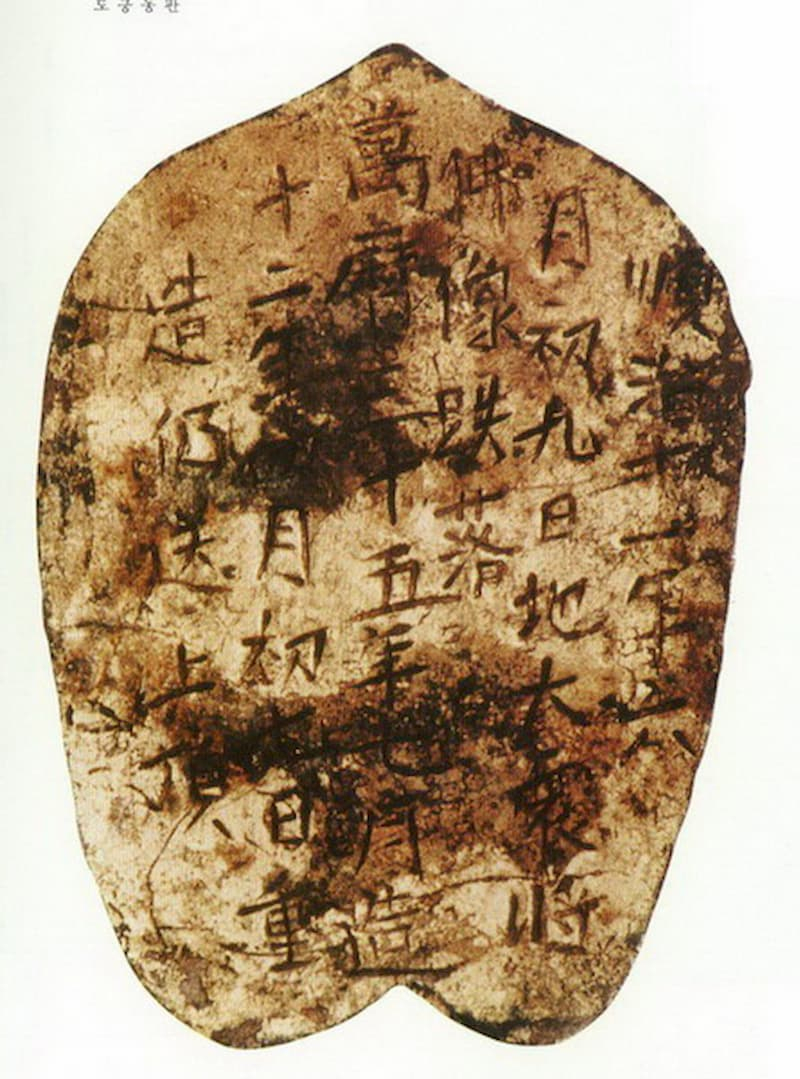 順治十一年六
月初九日地大震將
佛像跌落
萬曆三十五年七月造
十二年月初六日重
造仍送上